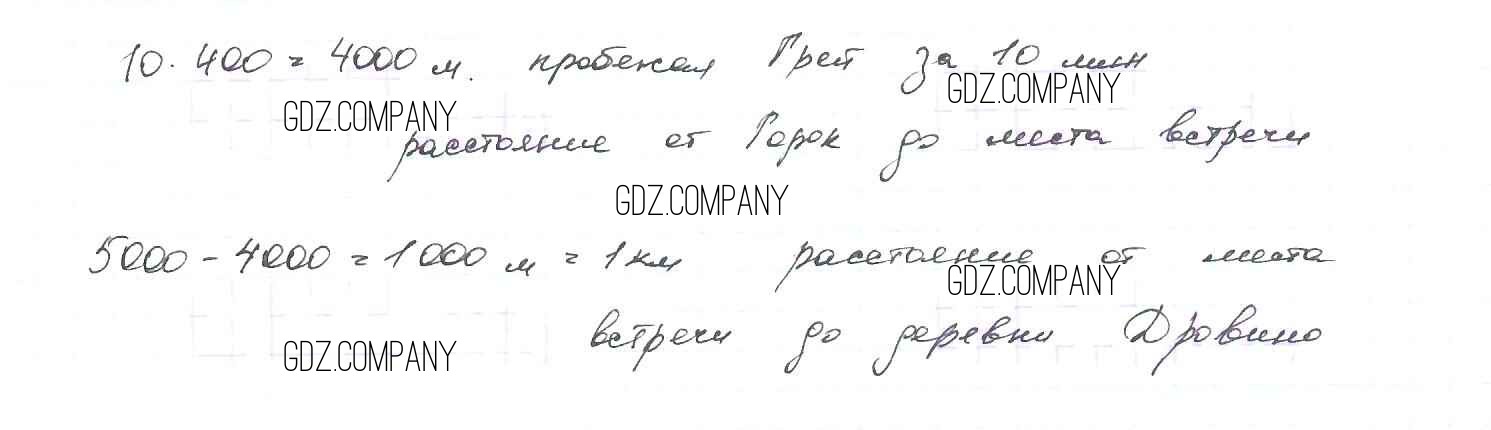 10 · 400 = 4000 м. пробежал Грей за 10 мин
GDZ.COMPANY GDZ.COMPANY
расстояние от Горок до места встречи
GDZ.COMPANY
5000 - 4000 = 1000 м = 1 км расстояние от места
GDZ.COMPANY
встречи до деревни Дровино
GDZ.COMPANY